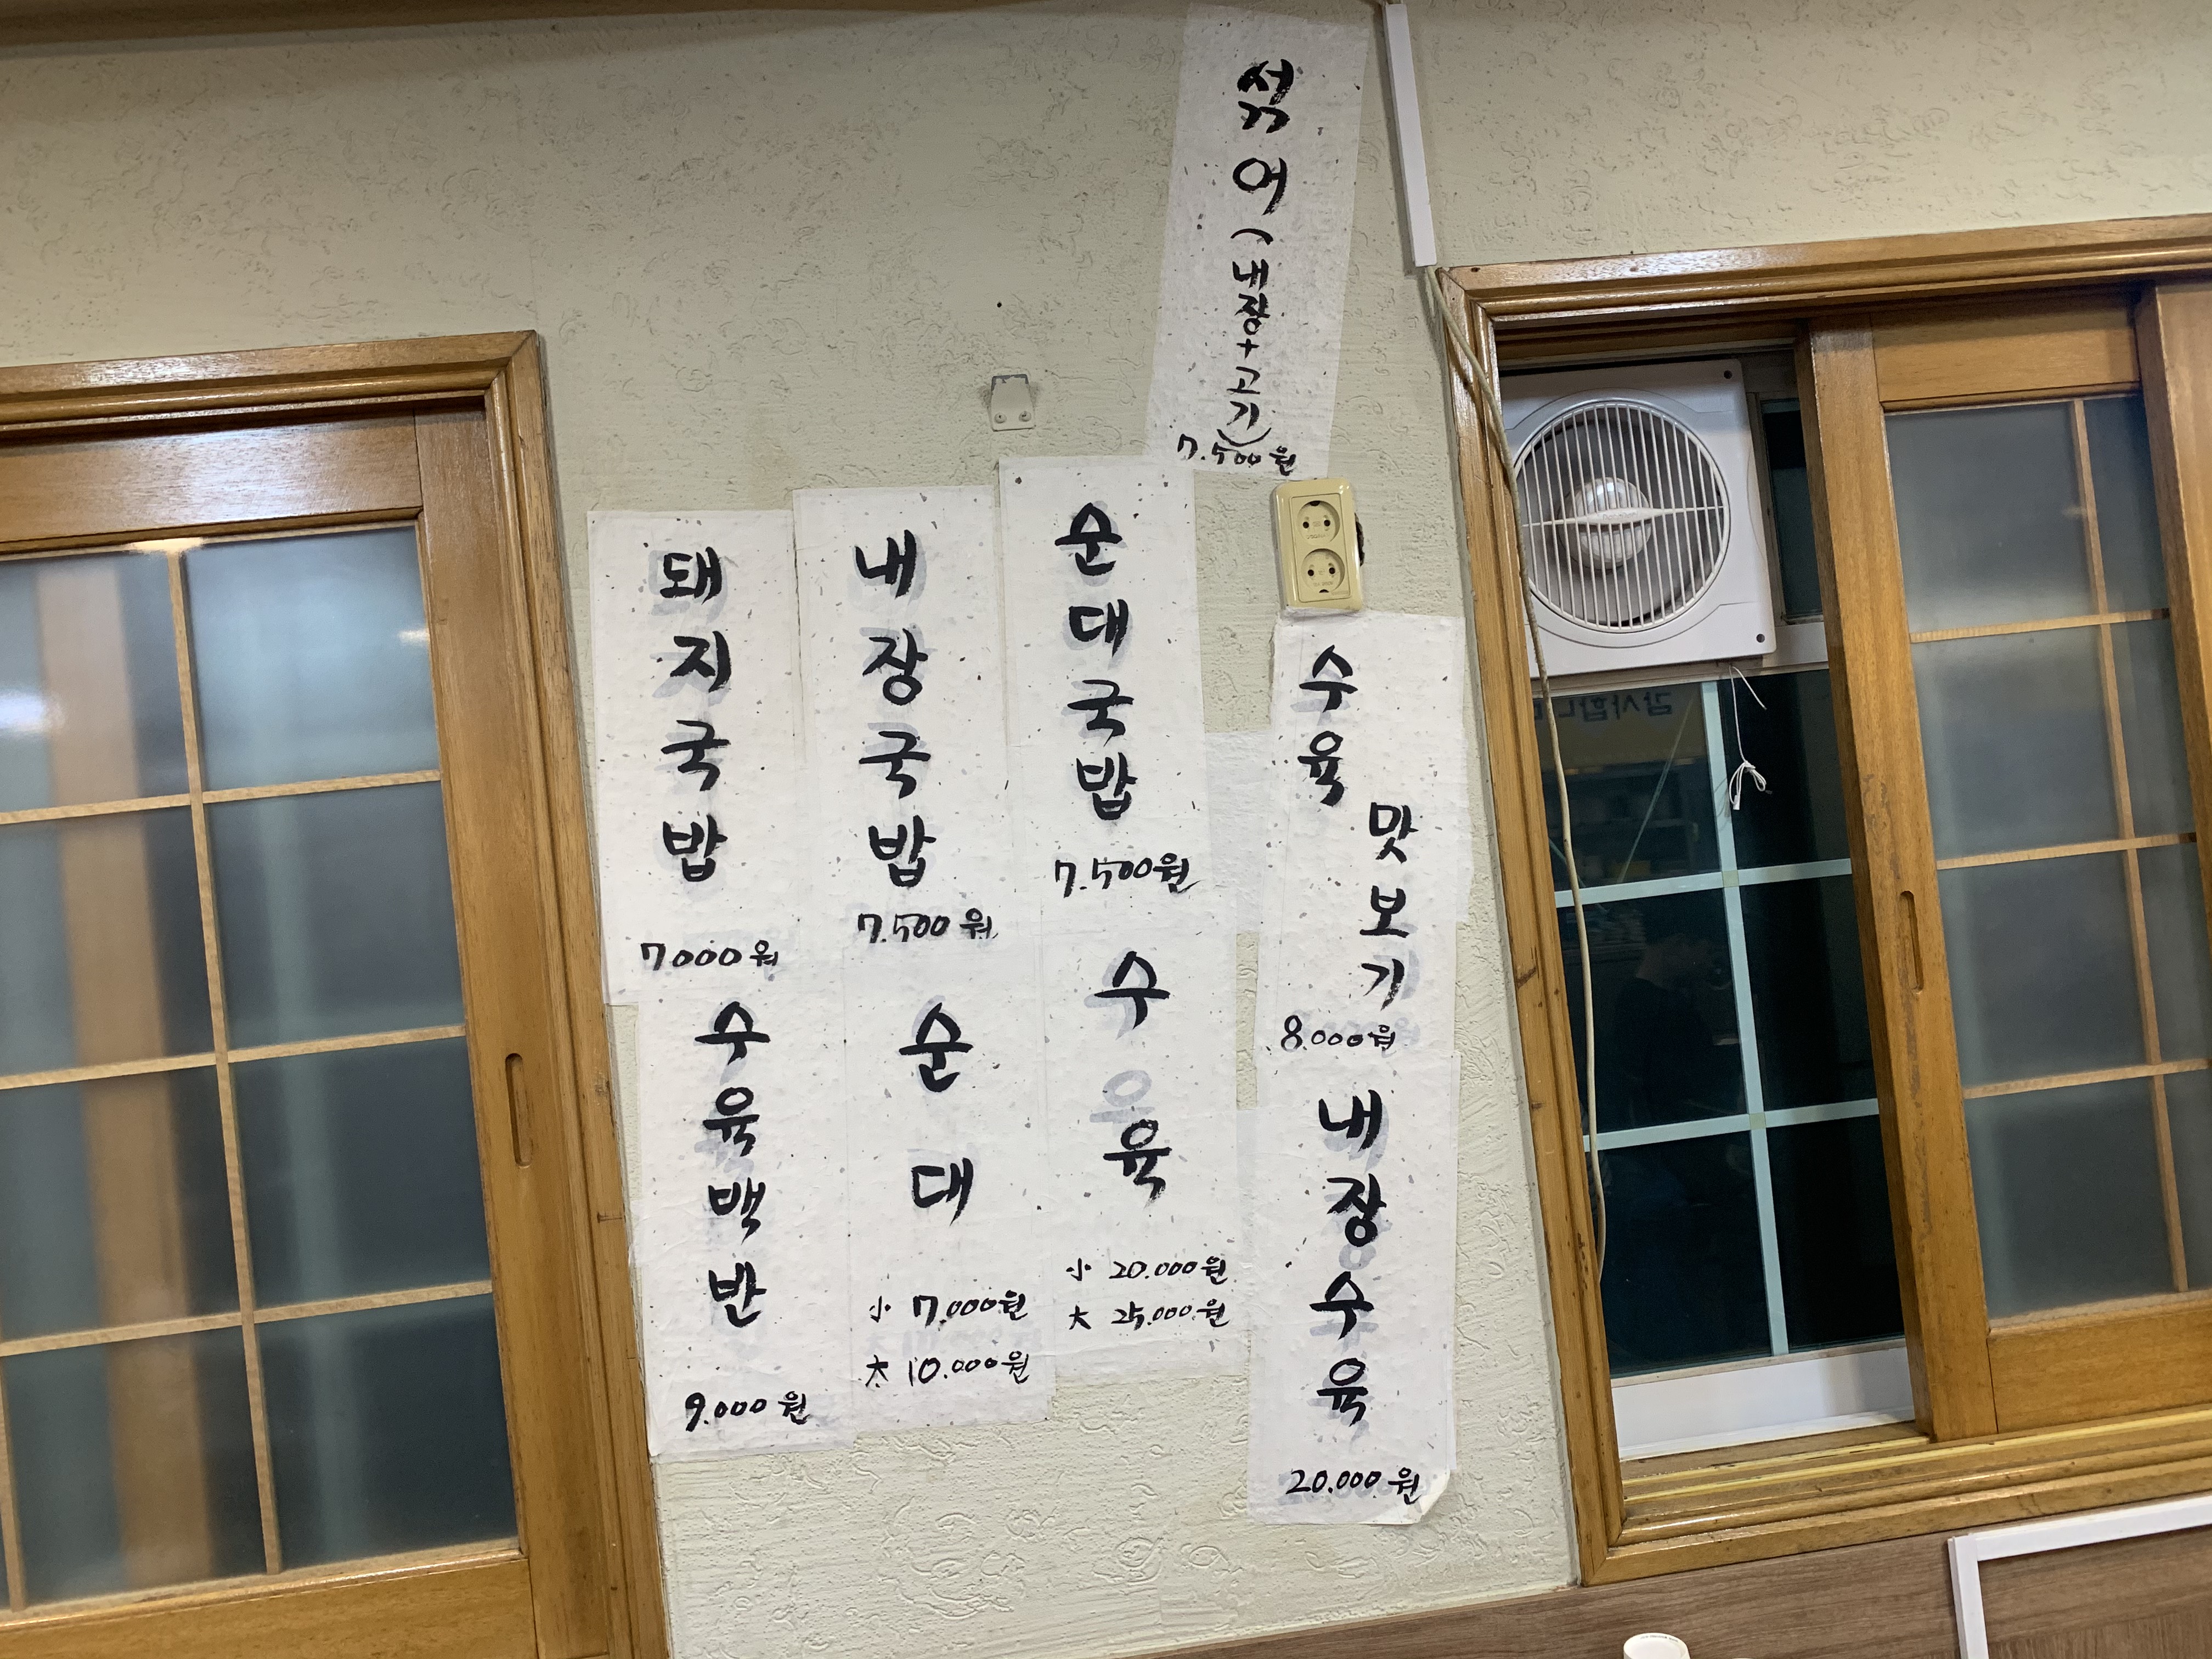 섞어(내장+고기)
7.500원
돼지국밥
7000원
내장국밥
7.500원
순대국밥
7.500원
수육
맛보기
8.000원
수육백반
9.000원
순대
小 7.000원
大 10.000원
수육
小 20.000원
大 25.000원
내장수육
20.000원